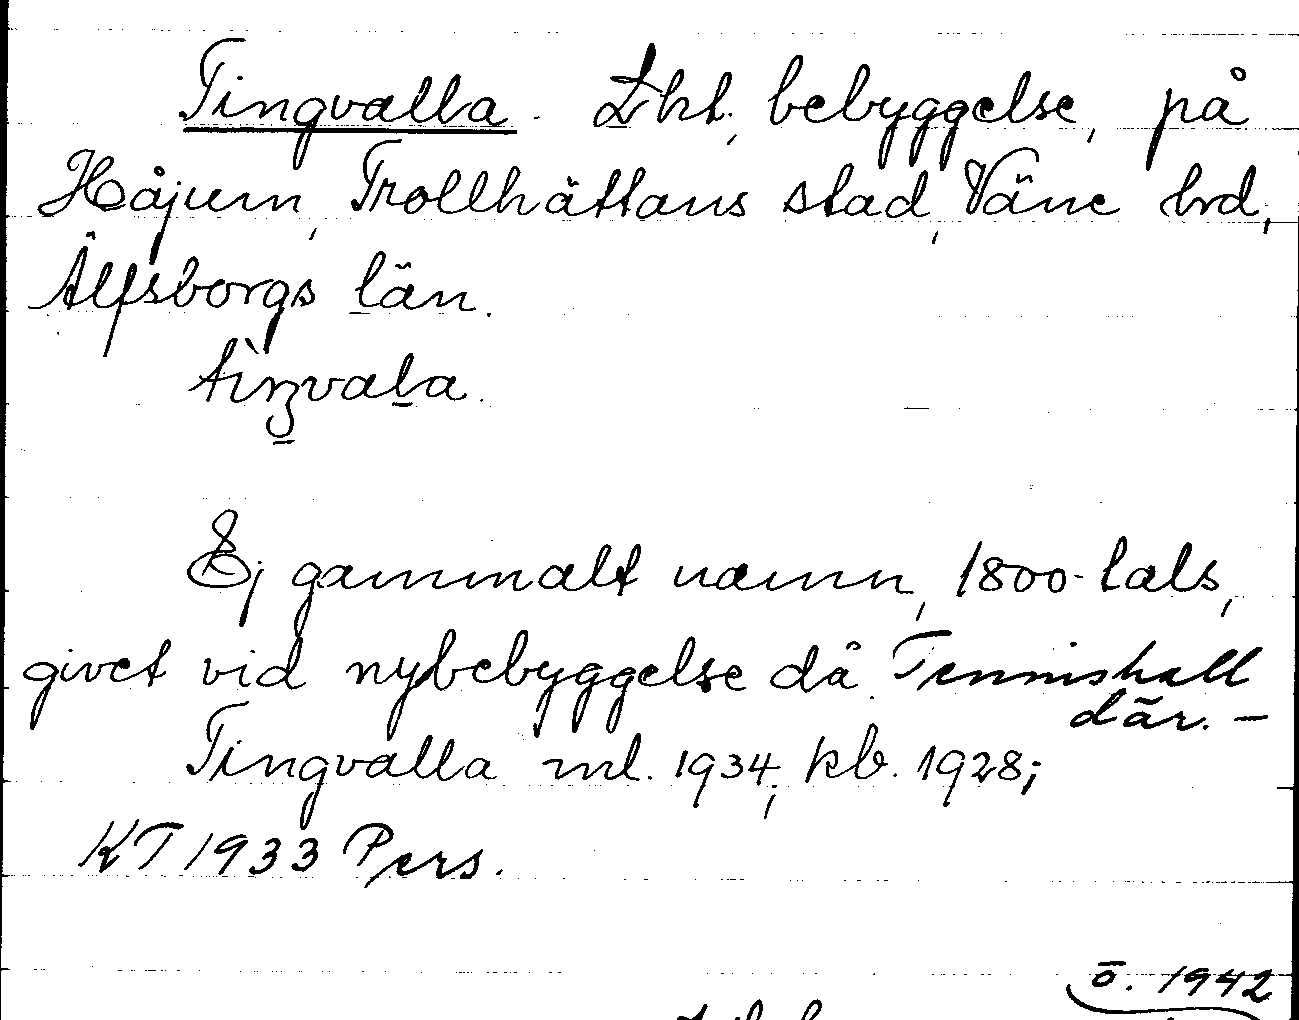 Tingvalla. Lht, bebyggelse, på
Håjum, Trollhättans stad, Väne hrd,
Älfsborgs län.
tìŋvala.
Ej gammalt namn, 1800-tals,
givet vid nybebyggelse då. Tennishall
där. —
Tingvalla ml. 1934, kb. 1928;
KT 1933 Pers.
ō. 1942